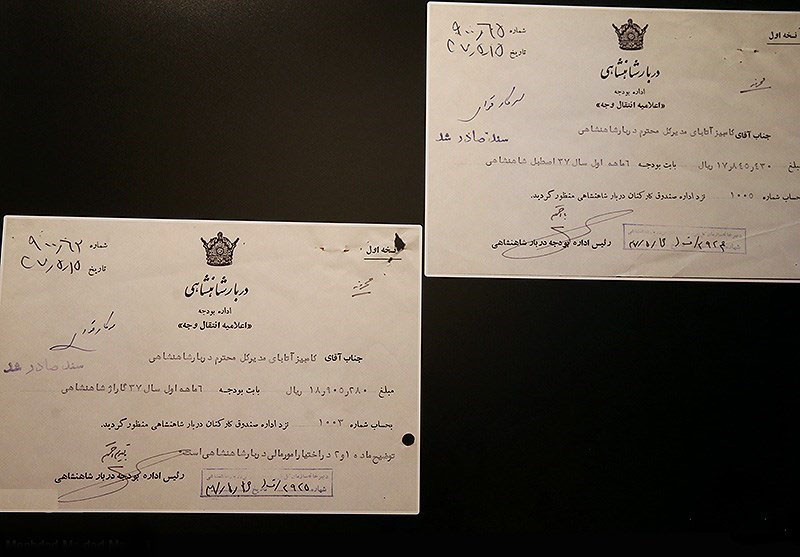 نسخه اول
شماره ۹۰۰٫۶۵
تاریخ ۳۷٫۵٫۱۵
دربار شاهنشاهی
اداره بودجه
«اعلامیه انتقال وجه»
سند صادر شد
جناب آقای کامبیز آتابای مدیرکل محترم دربار شاهنشاهی
مبلغ ۱۷٫۸۴۵٫۴۳۰ ریال بابت بودجه ۶ماهه اول سال ۳۷ اصطبل شاهنشاهی
بحساب شماره ۱۰۰۵ نزد اداره صندوق کارکنان دربار شاهنشاهی منظور گردید.
رئیس اداره بودجه دربار شاهنشاهی
نسخه اول
شماره ۹۰۰٫۶۳
تاریخ ۳۷٫۵٫۱۵
دربار شاهنشاهی
اداره بودجه
«اعلامیه انتقال وجه»
سند صادر شد
جناب آقای کامبیز آتابای مدیرکل محترم دربار شاهنشاهی
مبلغ ۱۸٫۹۰۵٫۲۸۰ ریال بابت بودجه ۶ماهه اول سال ۳۷ گاراژ شاهنشاهی
بحساب شماره ۱۰۰۳ نزد اداره صندوق کارکنان دربار شاهنشاهی منظور گردید.
توضیح ماده ۱و۲ در اختیار امور مالی دربار شاهنشاهی است
رئیس اداره بودجه دربار شاهنشاهی